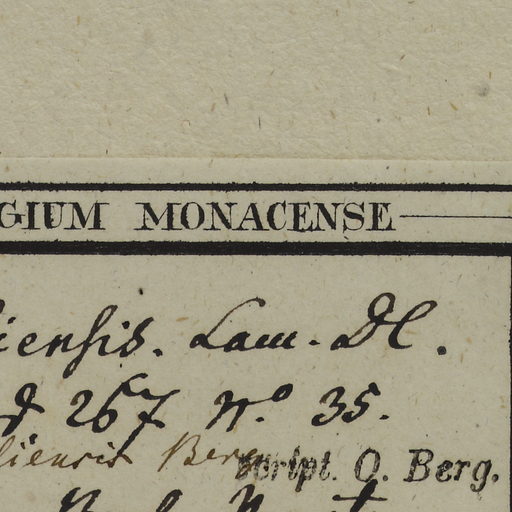 GIUM MONACENSE
iensis. Lam. DC.
267 N.o 35.
liensis Berg
script. O. Berg.